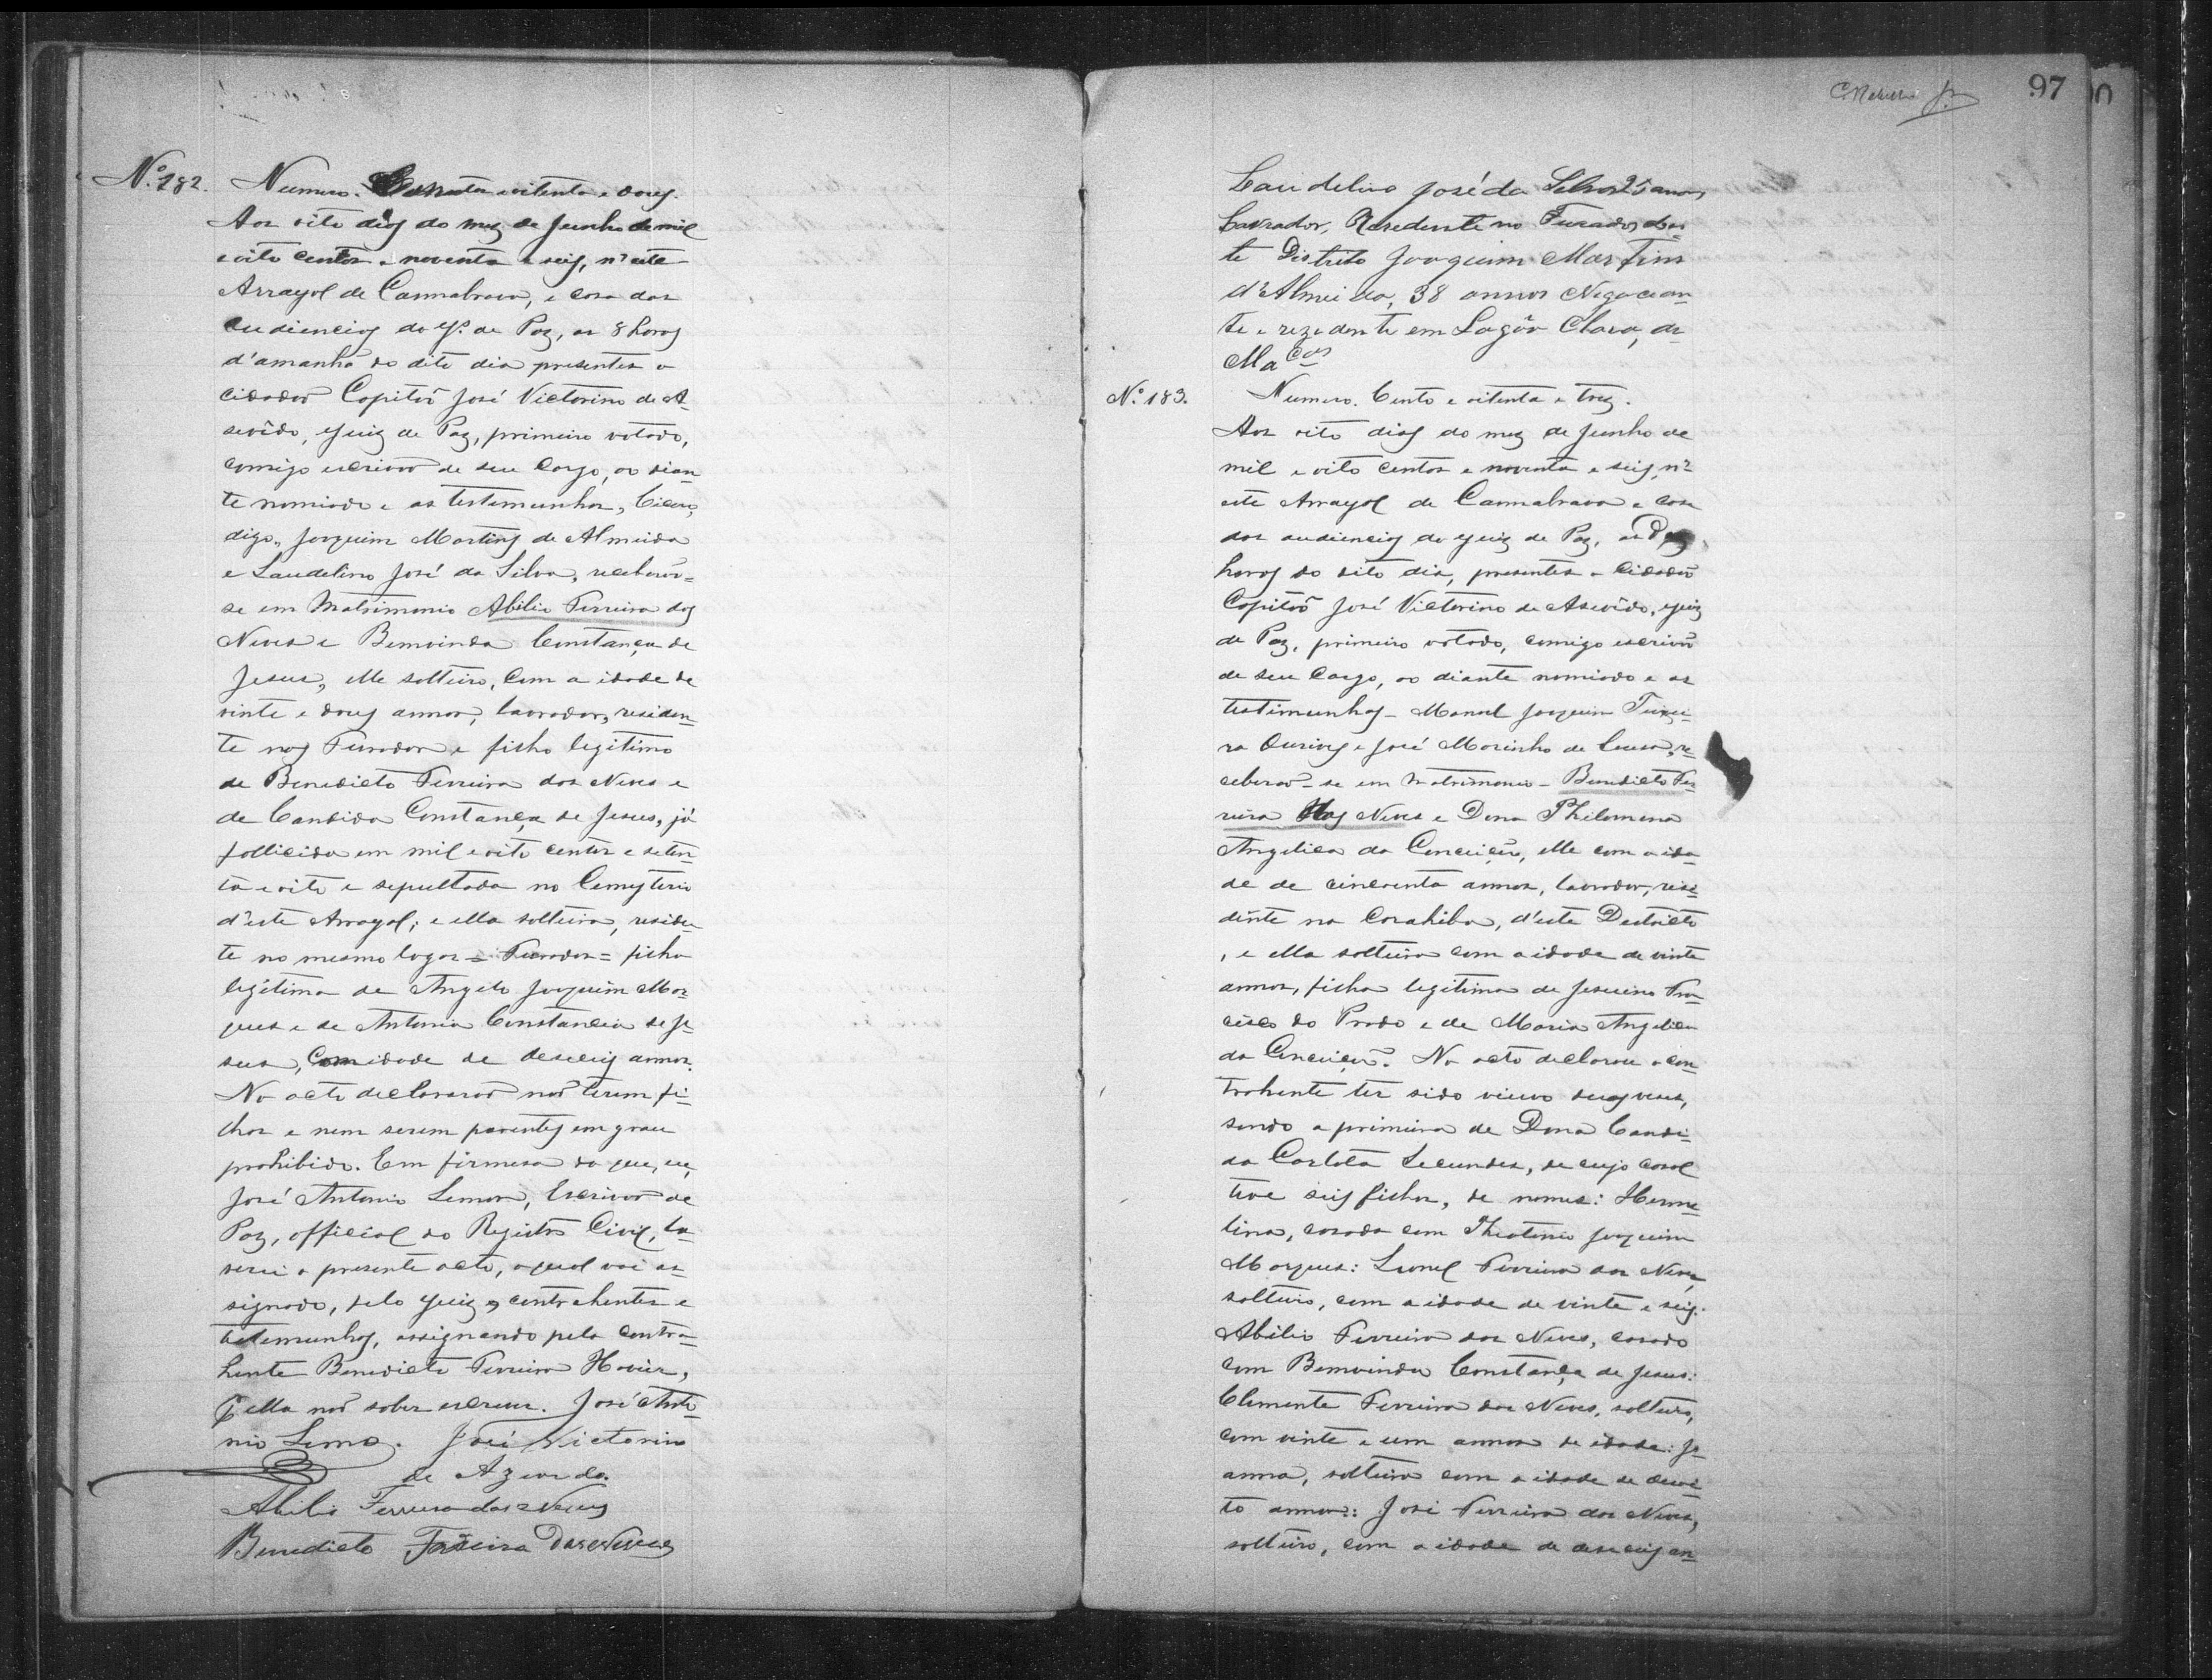 Nº 182. Numero. Cento e oitenta e dous.
Aos oito dias do mez de Junho de mil
e oito centos e noventa e seis, n'este
Arrayol de Cannabrava, e casa das
audiencias do Jº de Paz, as 8 horas
d'amanhã do dito dia presentes o
cidadão Capitão José Victorino de A-
sevêdo, Juiz de Paz, primeiro votado,
comigo escrivão de seu Cargo, ao dian
te nomiado e as testemunhas,
digo, Joaquim Martins de Almeida
e Laudelino José da Silva, receberão=
se em Matrimonio Abilio Ferreira dos
Neves e Bemvinda Constança de
Jesus, elle solteiro, com a idade de
vinte e dous annos, lavrador, residen-
te nos Furados e filho legitimo
de Benedicto Ferreira das Neves e
de Candida Constança de Jesus, já
fallicida em mil e oito centos e seten-
ta e oito e sepultada no Cemyterio
d'este Arrayol; e ella solteira, residen
te no mesmo logar = Furados = filha
legitima de Angelo Joaquim Mar
ques e de Antonia Constancia de Je
sus, Com idade de deseseis annos.
No acto declararão não terem fi-
lhos e nem serem parentes em grau
prohibido. Em firmesa do que, eu,
José Antonio Lemos, Escrivão de
Paz, official do Registro Civil, la-
vrei o presente acto, o qual vai as-
signado, pelo Juiz, contrahentes e
testemunhas, assignando pela contra-
hente Benedicto Ferreira
ella não saber escrever. José Anto-
nio Lemos. José Victorino
de Azevedo.
Abilio Ferreira das Neves
Benedicto Ferreira Das Neves
97
Laudelino José da Silva 25 annos,
Lavrador, Residente no Furados des-
te Distrito Joaquim Martins
d'Almeida, 38 annos Negocian-
te e rezedente em Lagôa Clara, de
Macas
Nº 183. Numero. Cento e oitenta e trez.
Aos oito dias do mez de Junho de
mil e oito centos e noventa e seis, n'
este Arrayol de Cannabrava e casa
das audiencias do Juiz de Paz, as
horas do dito dia, presentes o Cidadão
Capitão José Victorino de Asevêdo, Juiz
de Paz, primeiro votado, comigo escrivão
de seu Cargo, ao diante nomiado e as
testimunhas - Manoel Joaquim Teixei-
ra Ourives e José Marinho de Souza, re
ceberão-se em Matrimonio - Benedicto Fer-
reira das Neves e Dona Philomena
Angelica da Conceição, elle com a ida-
de de cincoenta annos, lavrador, resi-
dente na Carahiba, d'este Destricto
, e ella solteira com a idade de vinte
annos, filha legitima de Jesuino Fran-
cisco do Prado e de Maria Angelica
da Conceição. No acto declarou o con-
trahente ter sido viuvo duas veses,
sendo a primeira de Dona Candi-
da Carlota Secundes, de cujo casal
teve seis filhos, de nomes: Herme
lina, casada com Theotonio Joaquim
Marques: Leonel Ferreira das Neves,
solteiro, com a idade de vinte e seis.
Abilio Ferreira das Neves, casado
com Bemvinda Constança de Jesus:
Clemente Ferreira das Neves, solteiro,
com vinte e um annos de idade: Jo
anna, solteira com a idade de desoi
to annos: José Ferreira das Neves,
solteiro, com a idade de deseseis an-